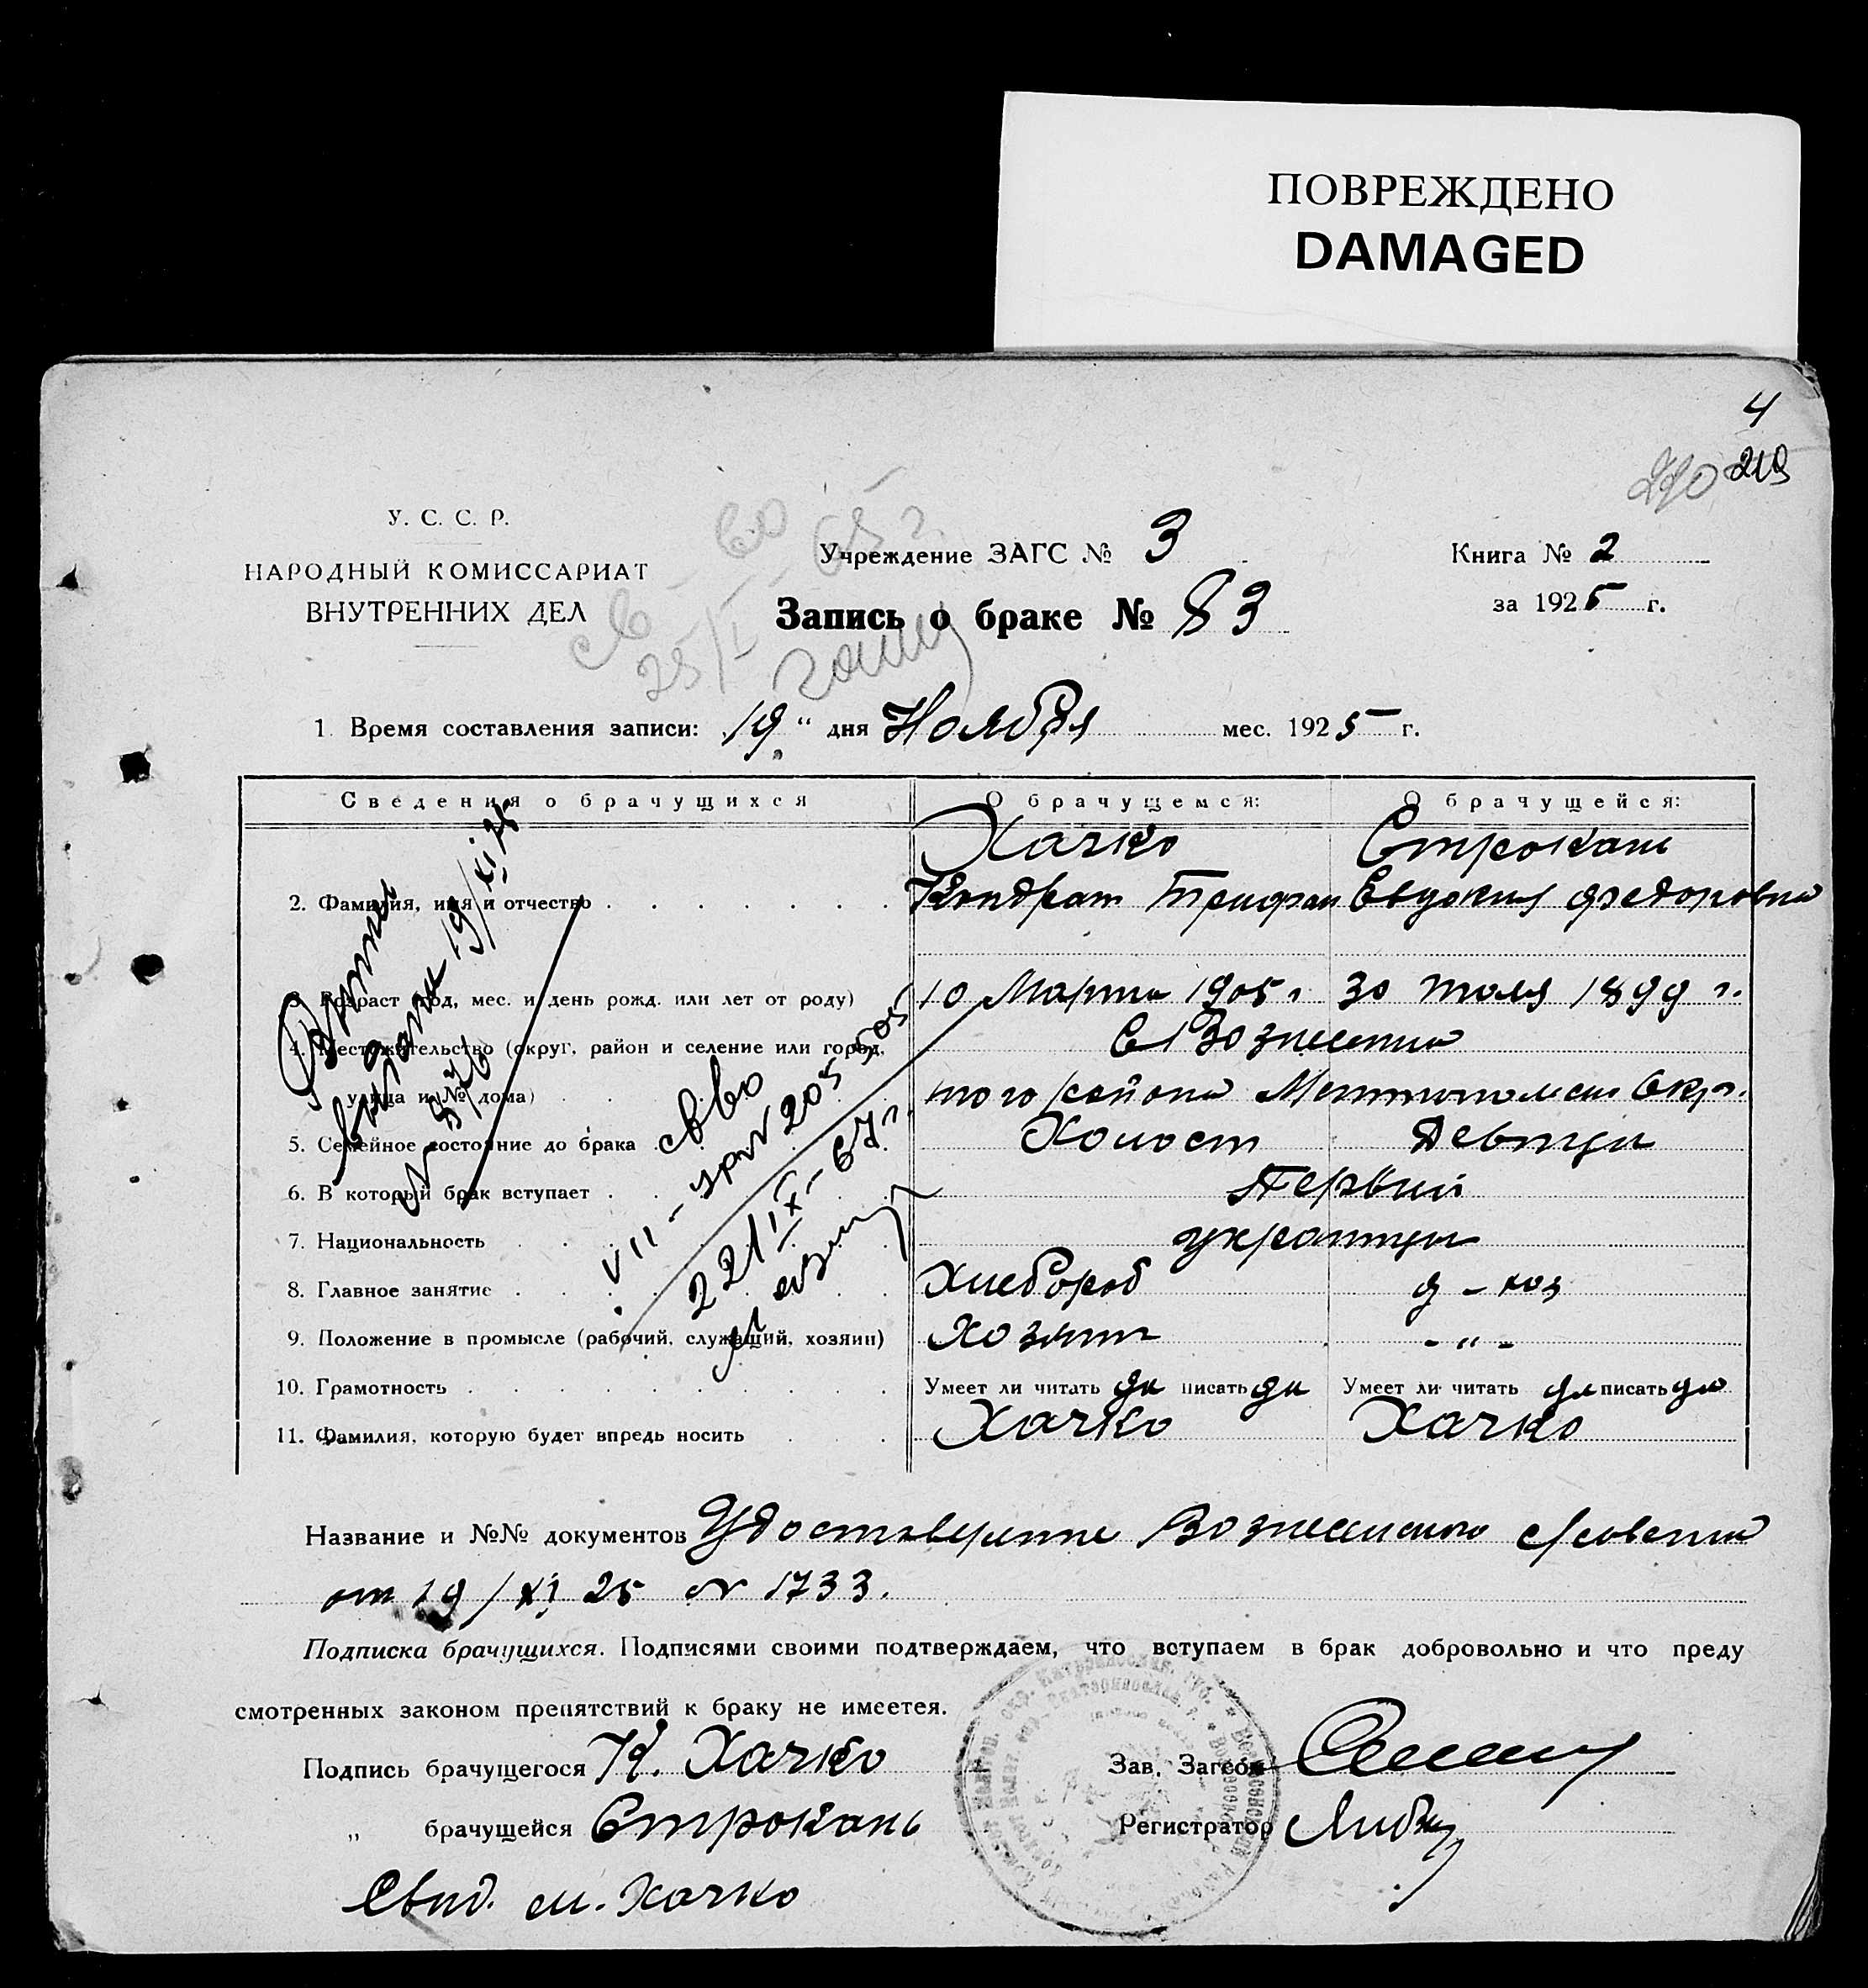 ПОВРЕЖДЕНО
DAMAGED
4
270 219
У. С. С. Р.
НАРОДНЫЙ КОМИССАРИАТ
ВНУТРЕННИХ ДЕЛ
Учреждение ЗАГС № 3
Книга № 2
Запись о браке № 83
за 1925 г.
1. Время составления записи: 19 " дня Ноября мес. 1925 г.
Сведения о брачущихся О брачущемся: О брачущейся:
Хачко Строкань
2. Фамилия, имя и отчество Кондрат Трифан Евдокия Федоровна
3. Возраст (год, мес. и день рожд. или лет от роду) 10 Марта 1905 г. 30 июля 1899 г.
4. Местожительство (округ, район и селение или город, С Вознесенка
улица и № дома) того района Окр.
5. Семейное состояние до брака Холост Девица
6. В который брак вступает Первый
7. Национальность украинцы
8. Главное занятие Хлебороб д - хоз
9. Положение в промысле (рабочий, служащий, хозяин) Хозяин - " -
10. Грамотность Умеет ли читать да писать да Умеет ли читать да писать да
11. Фамилия, которую будет впредь носить Хачко Хачко
выдана 19/XI 25
№ 376
св-во
22/IX-67г.
Название и №№ документов Удостоверение Вознесенского с/совета
от 19/XI 25 № 1733.
Подписка брачущихся. Подписями своими подтверждаем, что вступаем в брак добровольно и что преду
смотренных законом препятствий к браку не имеется.
Подпись брачущегося К. Хачко Зав. Загсом
„ брачущейся Строкань Регистратор
Свид. М. Хачко